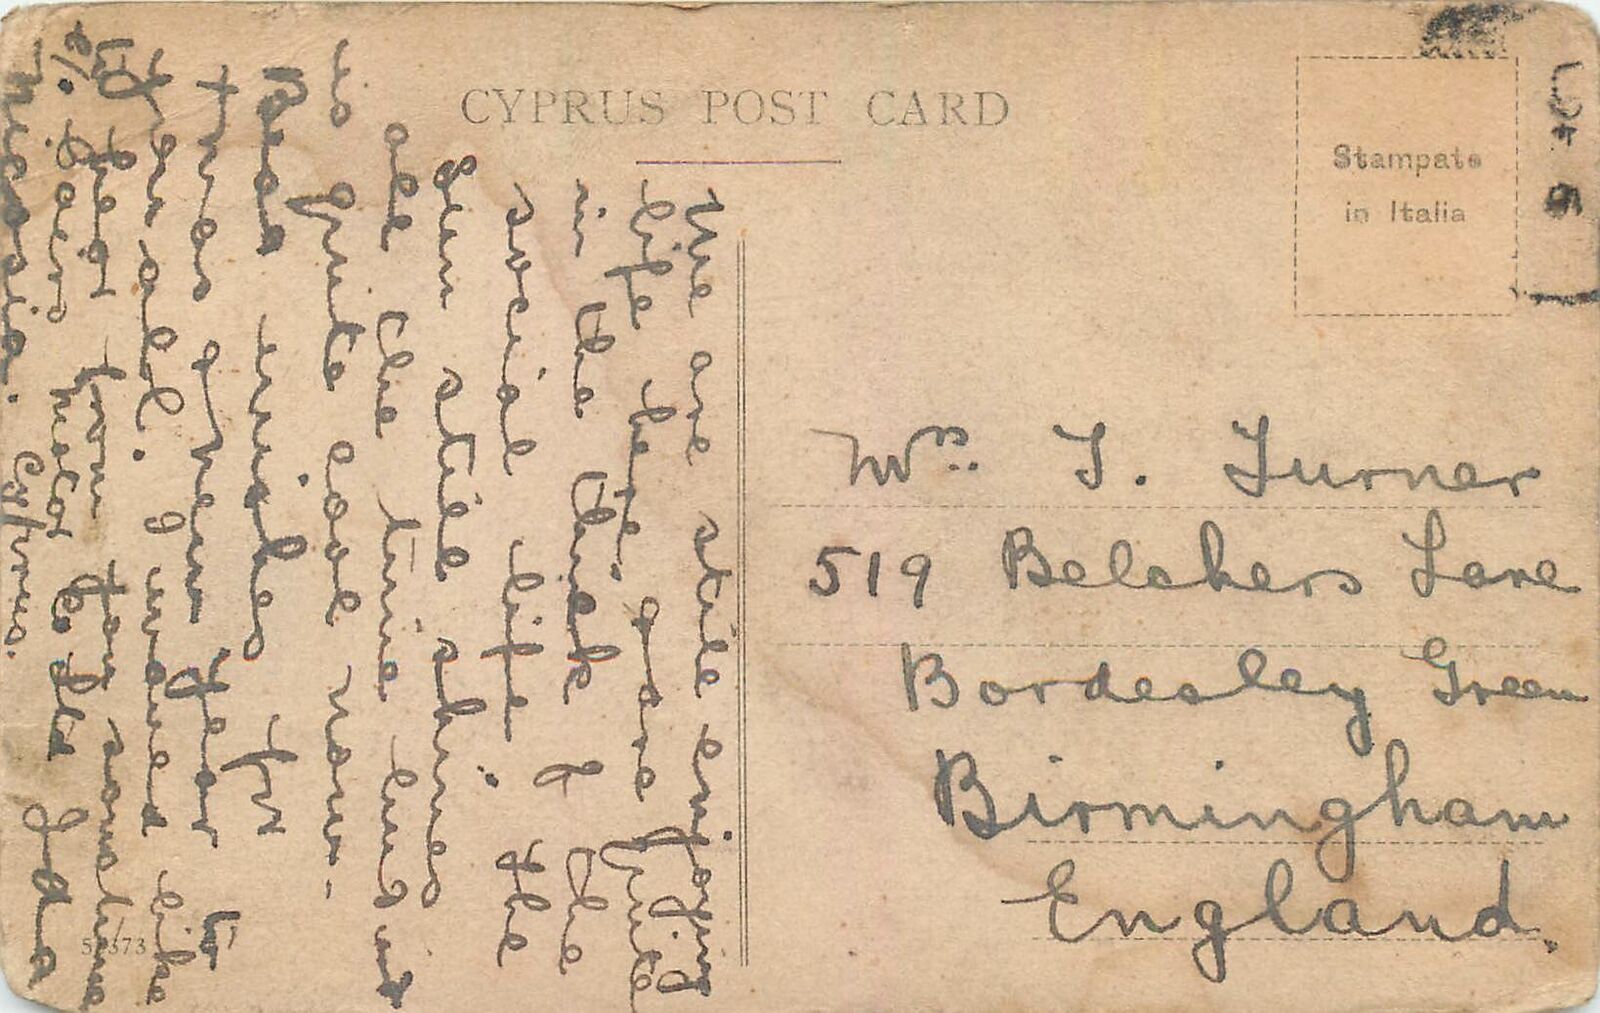 CYPRUS POST CARD
Stampato
in Italia
We are still enjoying
life here. quite
in the thick of the
social life. The
Sun still shines
all the time but it
is quite cool now.
Best wishes for
Xmas & New Year to
you all. I would like
to hear from you sometime
c/o Barclays Bank
Nicosia. Cyprus.
Mrs. T. Turner
519 Belchers Lane
Bordesley Green
Birmingham
England.